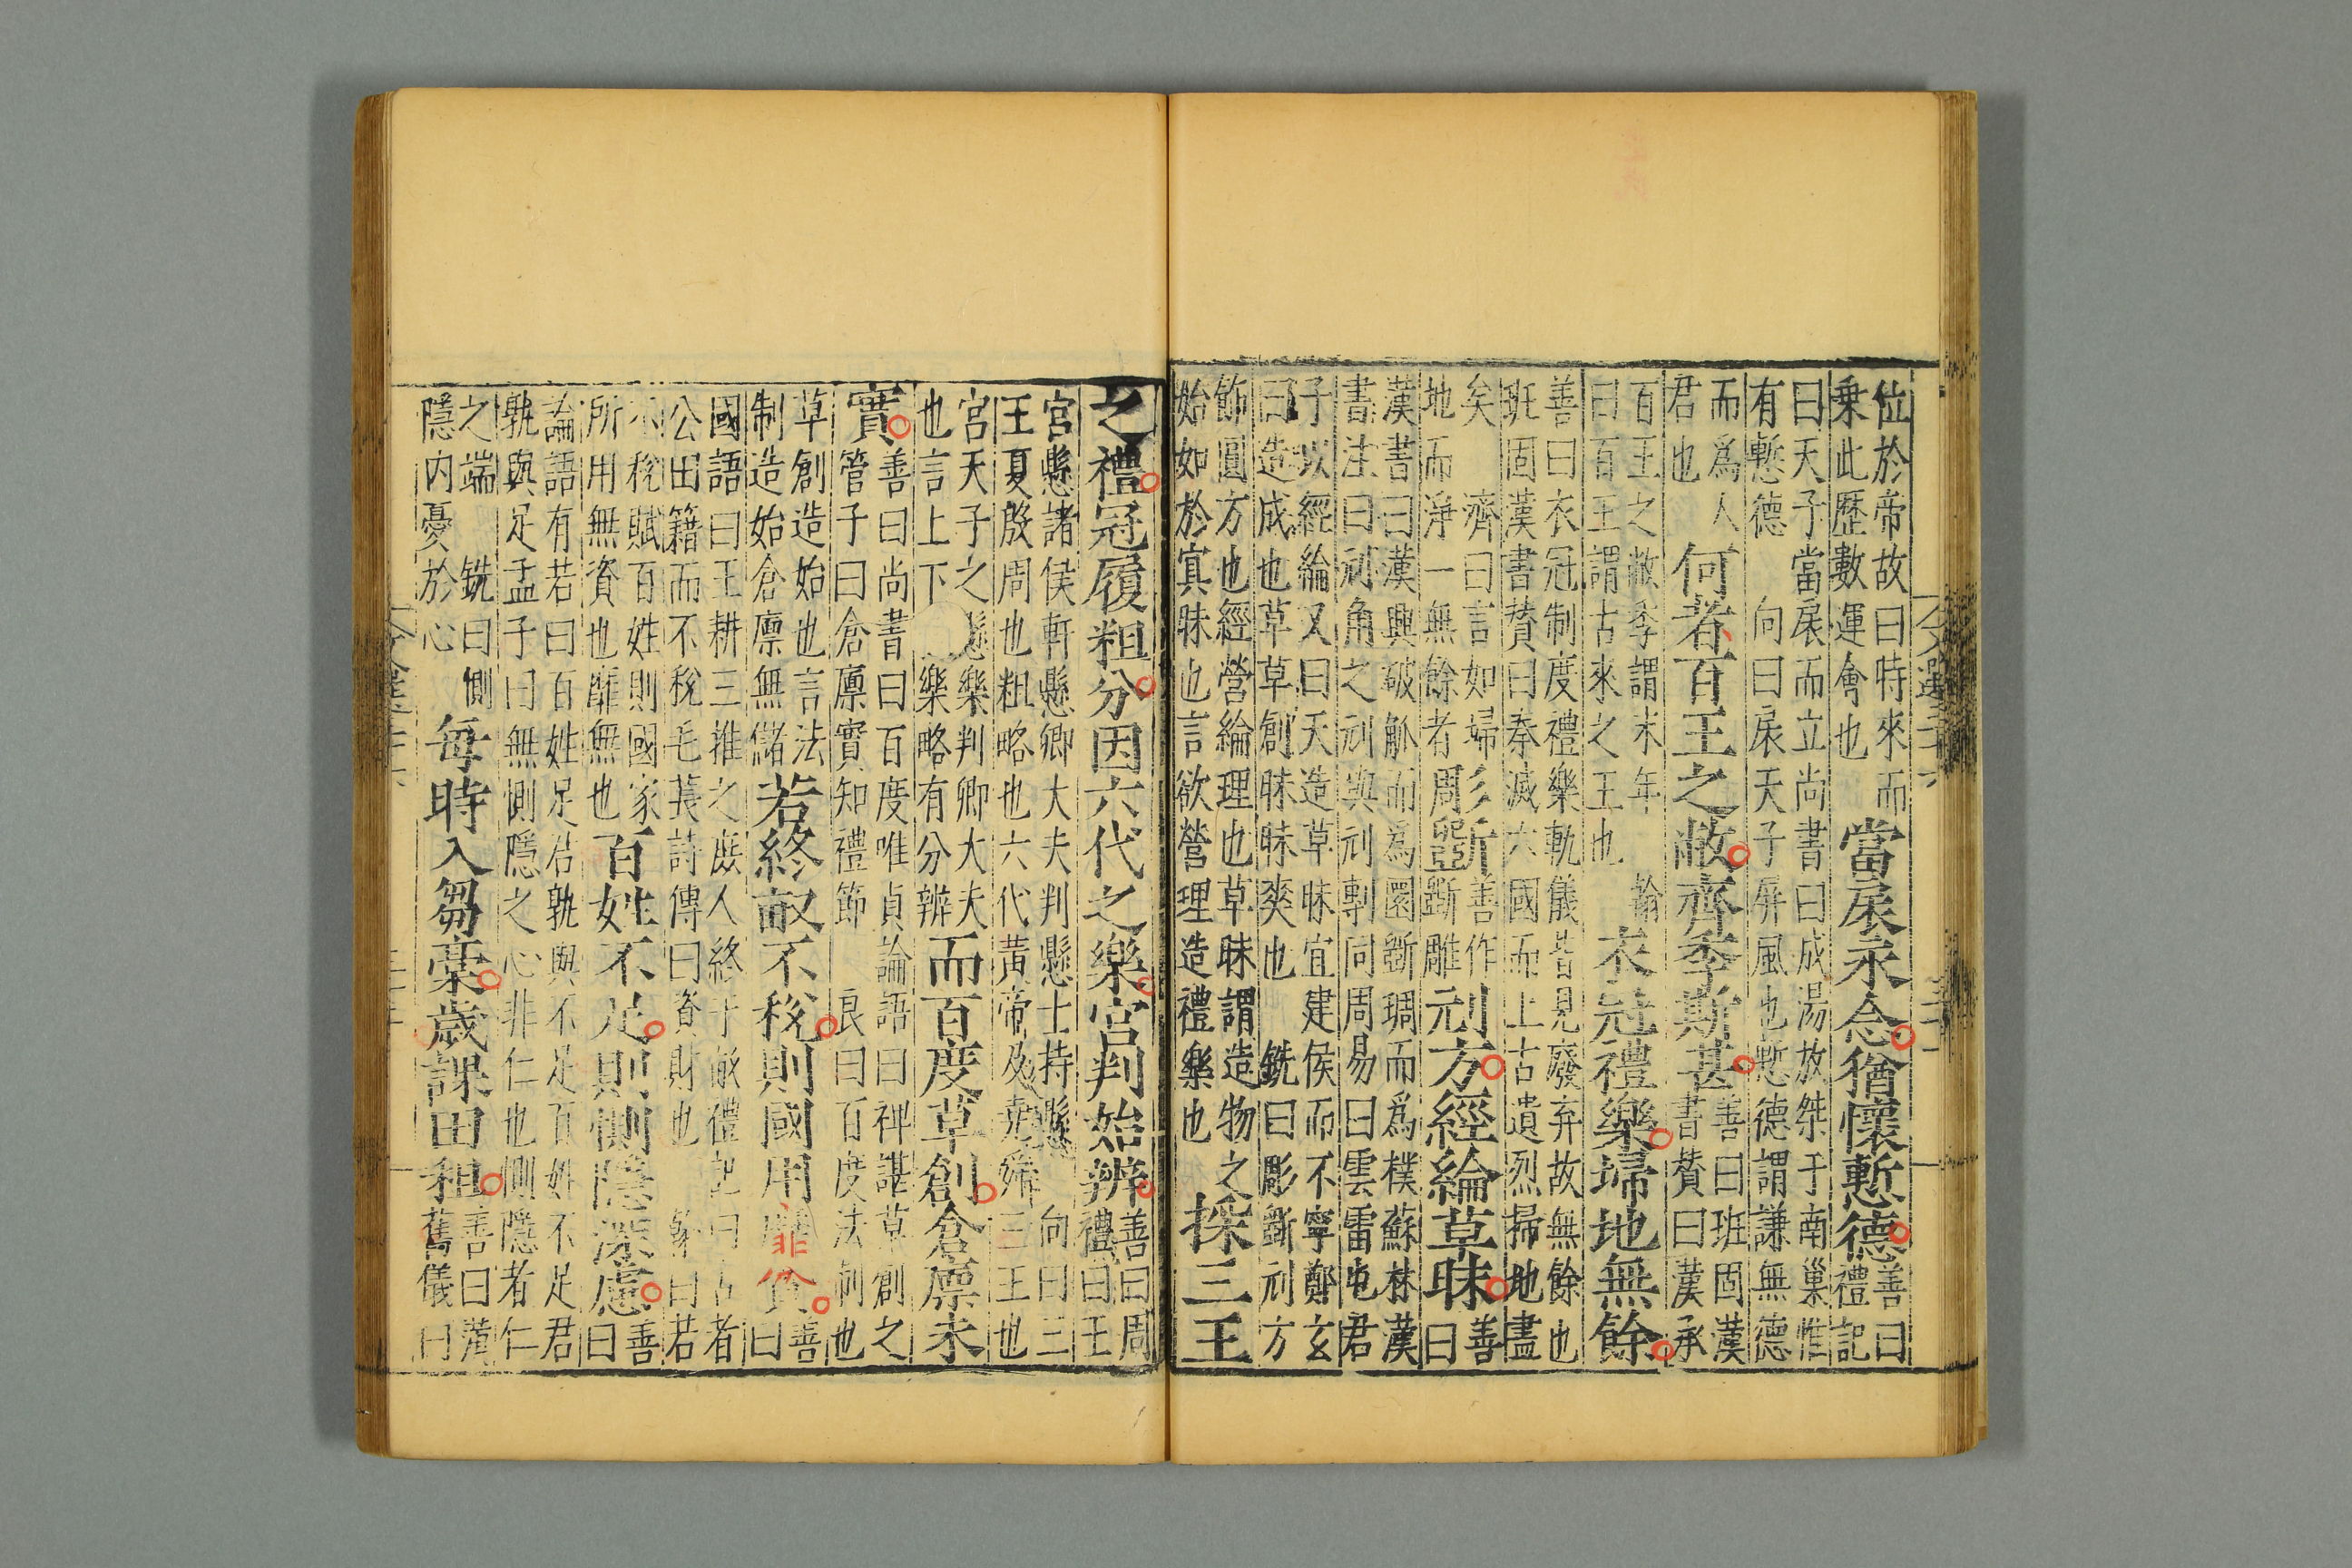 位於帝故曰時來而
乗此歷數運會也
當扆永念猶懷慙德
善曰
禮記
曰天子當扆而立尚書曰成湯放桀于南巢惟
有慙德 向曰扆天子屏風也慙德謂謙無德
而爲人
君也
何者百王之敝齊季斯甚
善曰班固漢
書賛曰漢承
百王之敝季謂末年 翰
曰百王謂古來之王也
衣冠禮樂埽地無餘
善曰衣冠制度禮樂軌儀皆見廢弃故無餘也
班固漢書賛曰秦滅六國而上古遺烈掃地盡
矣 濟曰言如埽
地而淨一無餘者
彫斵
善作
斵雕
刓方經綸草昧
善
曰
漢書曰漢興破觚而爲圜斵琱而爲樸蘇林漢
書注曰刓角之刓與刓剸同周易曰雲雷屯君
子以經綸又曰天造草昧宜建侯而不寧鄭玄
曰造成也草草創昧昧爽也 銑曰彫斵刓方
飾圓方也經營綸理也草昧謂造物之
始如於寘昧也言欲營理造禮樂也
採三王
之禮冠履粗分因六代之樂宮判始辨
善曰周
禮曰王
宮懸諸侯軒懸卿大夫判懸士持懸 向曰三
王夏啓周也粗略也六代黃帝及堯舜三王也
宮天子之懸樂判卿大夫
也言上下 樂略有分辨
而百度草創倉廩未
實
善曰尚書曰百度唯貞論語曰裨諶草創之
管子曰倉廩實知禮節 良曰百度法制也
草創造始也言法
制造始倉廩無儲
若終畝不稅則國用靡資
善
曰
國語曰王耕三推之庶人終于畝禮記曰古者
公田籍而不稅毛萇詩傳曰資財也 翰曰若
不稅賦百姓則國家
所用無資也靡無也
百姓不足則惻隱深慮
善
曰
論語有若曰百姓足君孰與不足百姓不足君
孰與足孟子曰無惻隱之心非仁也惻隱者仁
之端 銑曰惻
隱内憂於心
每時入芻稾歲課田租
善曰漢
舊儀曰